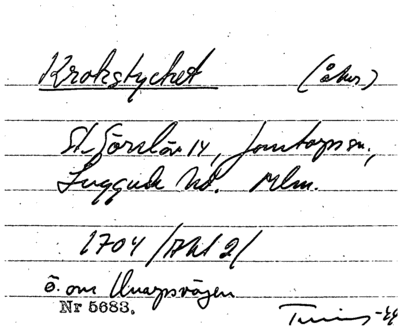 Krokstycket (åker)
St. Törslöv 14, Jonstorps sn.,
Luggude hd. Mlm.
1704 /Akt 2/
ö. om Unarpsvägen
Nr 5683.